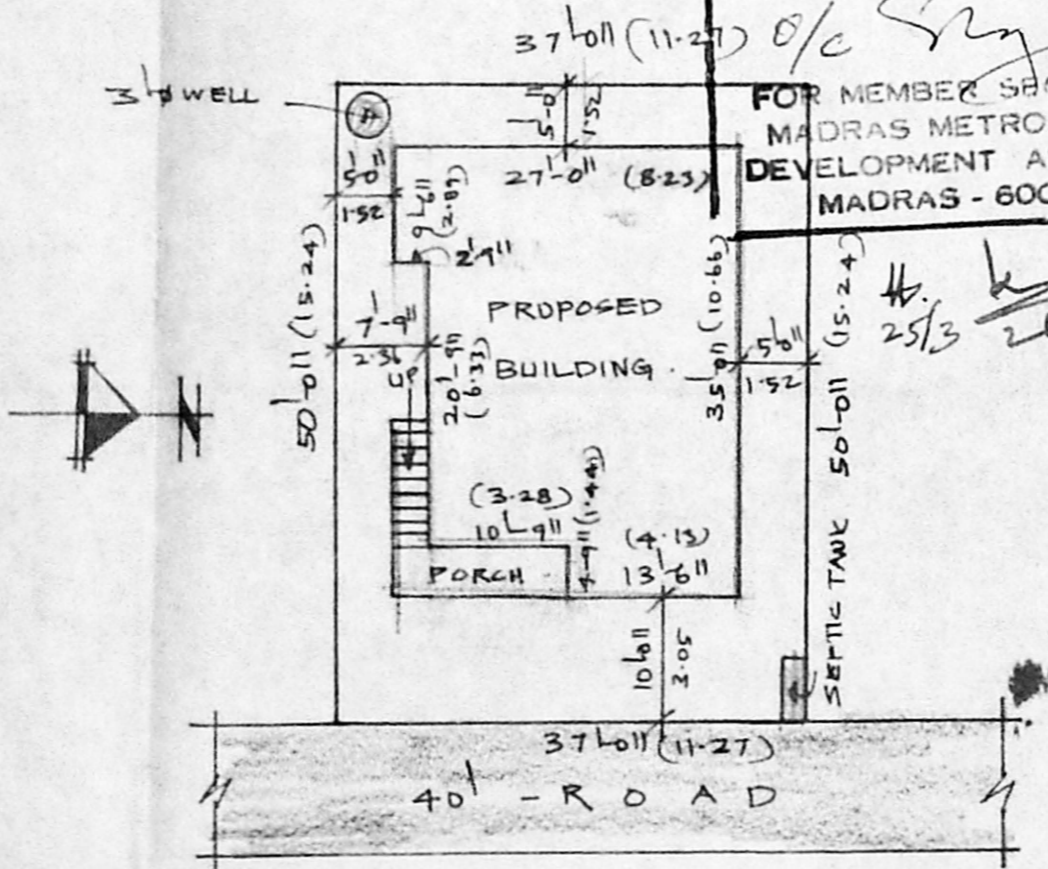 37'-0" (11.27) O/C
3'Φ WELL
FOR MEMBER SE
MADRAS METRO
DEVELOPMENT A
MADRAS - 600
5'-0"
1.52
27'-0" (8.23)
5'-0"
1.52
9'-6"
(2.89)
2'-9"
50'-0" (15.24)
7'-9"
2.36
UP
20'-9"
(6.33)
PROPOSED
BUILDING.
35'-0" (10.66)
5'-0"
1.52
50'-0" (15.24)
25/3
N
(3.28)
10'-9"
4'-9" (1.44)
(4.13)
13'-6"
PORCH
10'-0"
3.05
SEPTIC TANK
37'-0" (11.27)
40' - ROAD